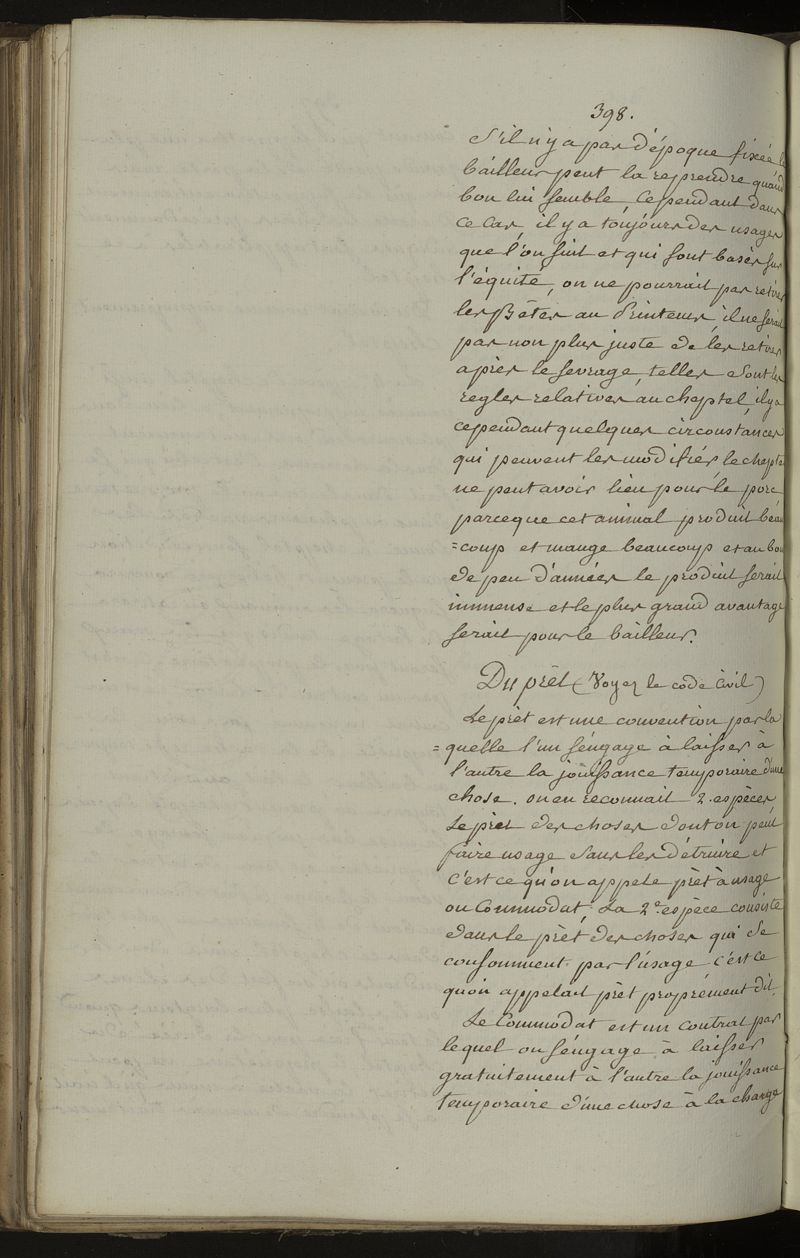 398.
S'il n'y a pas d'époque fixée le
bailleur peut la reprendre quand
bon lui semble, Cependant dans
ce cas, il y a toujours des usages
que l'on suit et qui sont basés sur
l'équité, on ne pourrait pas retirer
les Bêtes au Printems, il ne serait
pas non plus juste de les retirer
après le sevrage, telles sont les
regles relatives au cheptel, il y a
cependant quelques circonstances
qui peuvent les modifiér, le cheptel
ne peut avoir lieu pour le porc
parceque cet animal produit beau
=coup et mange beaucoup et au bout
de peu d'années le produit serait
immense et le plus grand avantage
serait pour le bailleur.
Du prêt (Voyez le code Civil)
Le prèt est une convention par la
=quelle l'un s'engage à laisser à
l'autre la jouissance temporaire d'une
chose. on en reconnait 2. espèces
Le prèt des choses dont on peut
faire usage sans les détruire et
c'est ce qu'on appele prèt à usage
ou Commodat; La 2e. espèce consiste
dans le prèt des choses qui se
consomment par l'usage, c'est ce
qu'on appelait prèt proprement dit.
Le Commodat est un contrat par
lequel on s'engage à laisser
gratuitement à l'autre la jouissance
temporaire d'une chose à la charge